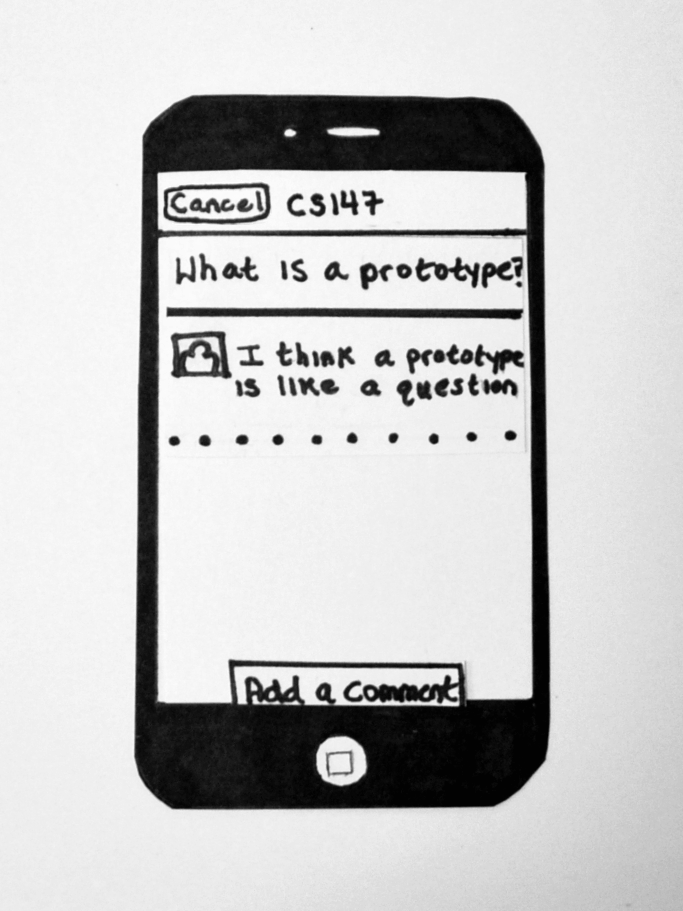 Cancel CS147
What is a prototype?
I think a prototype
is like a question
Add a comment